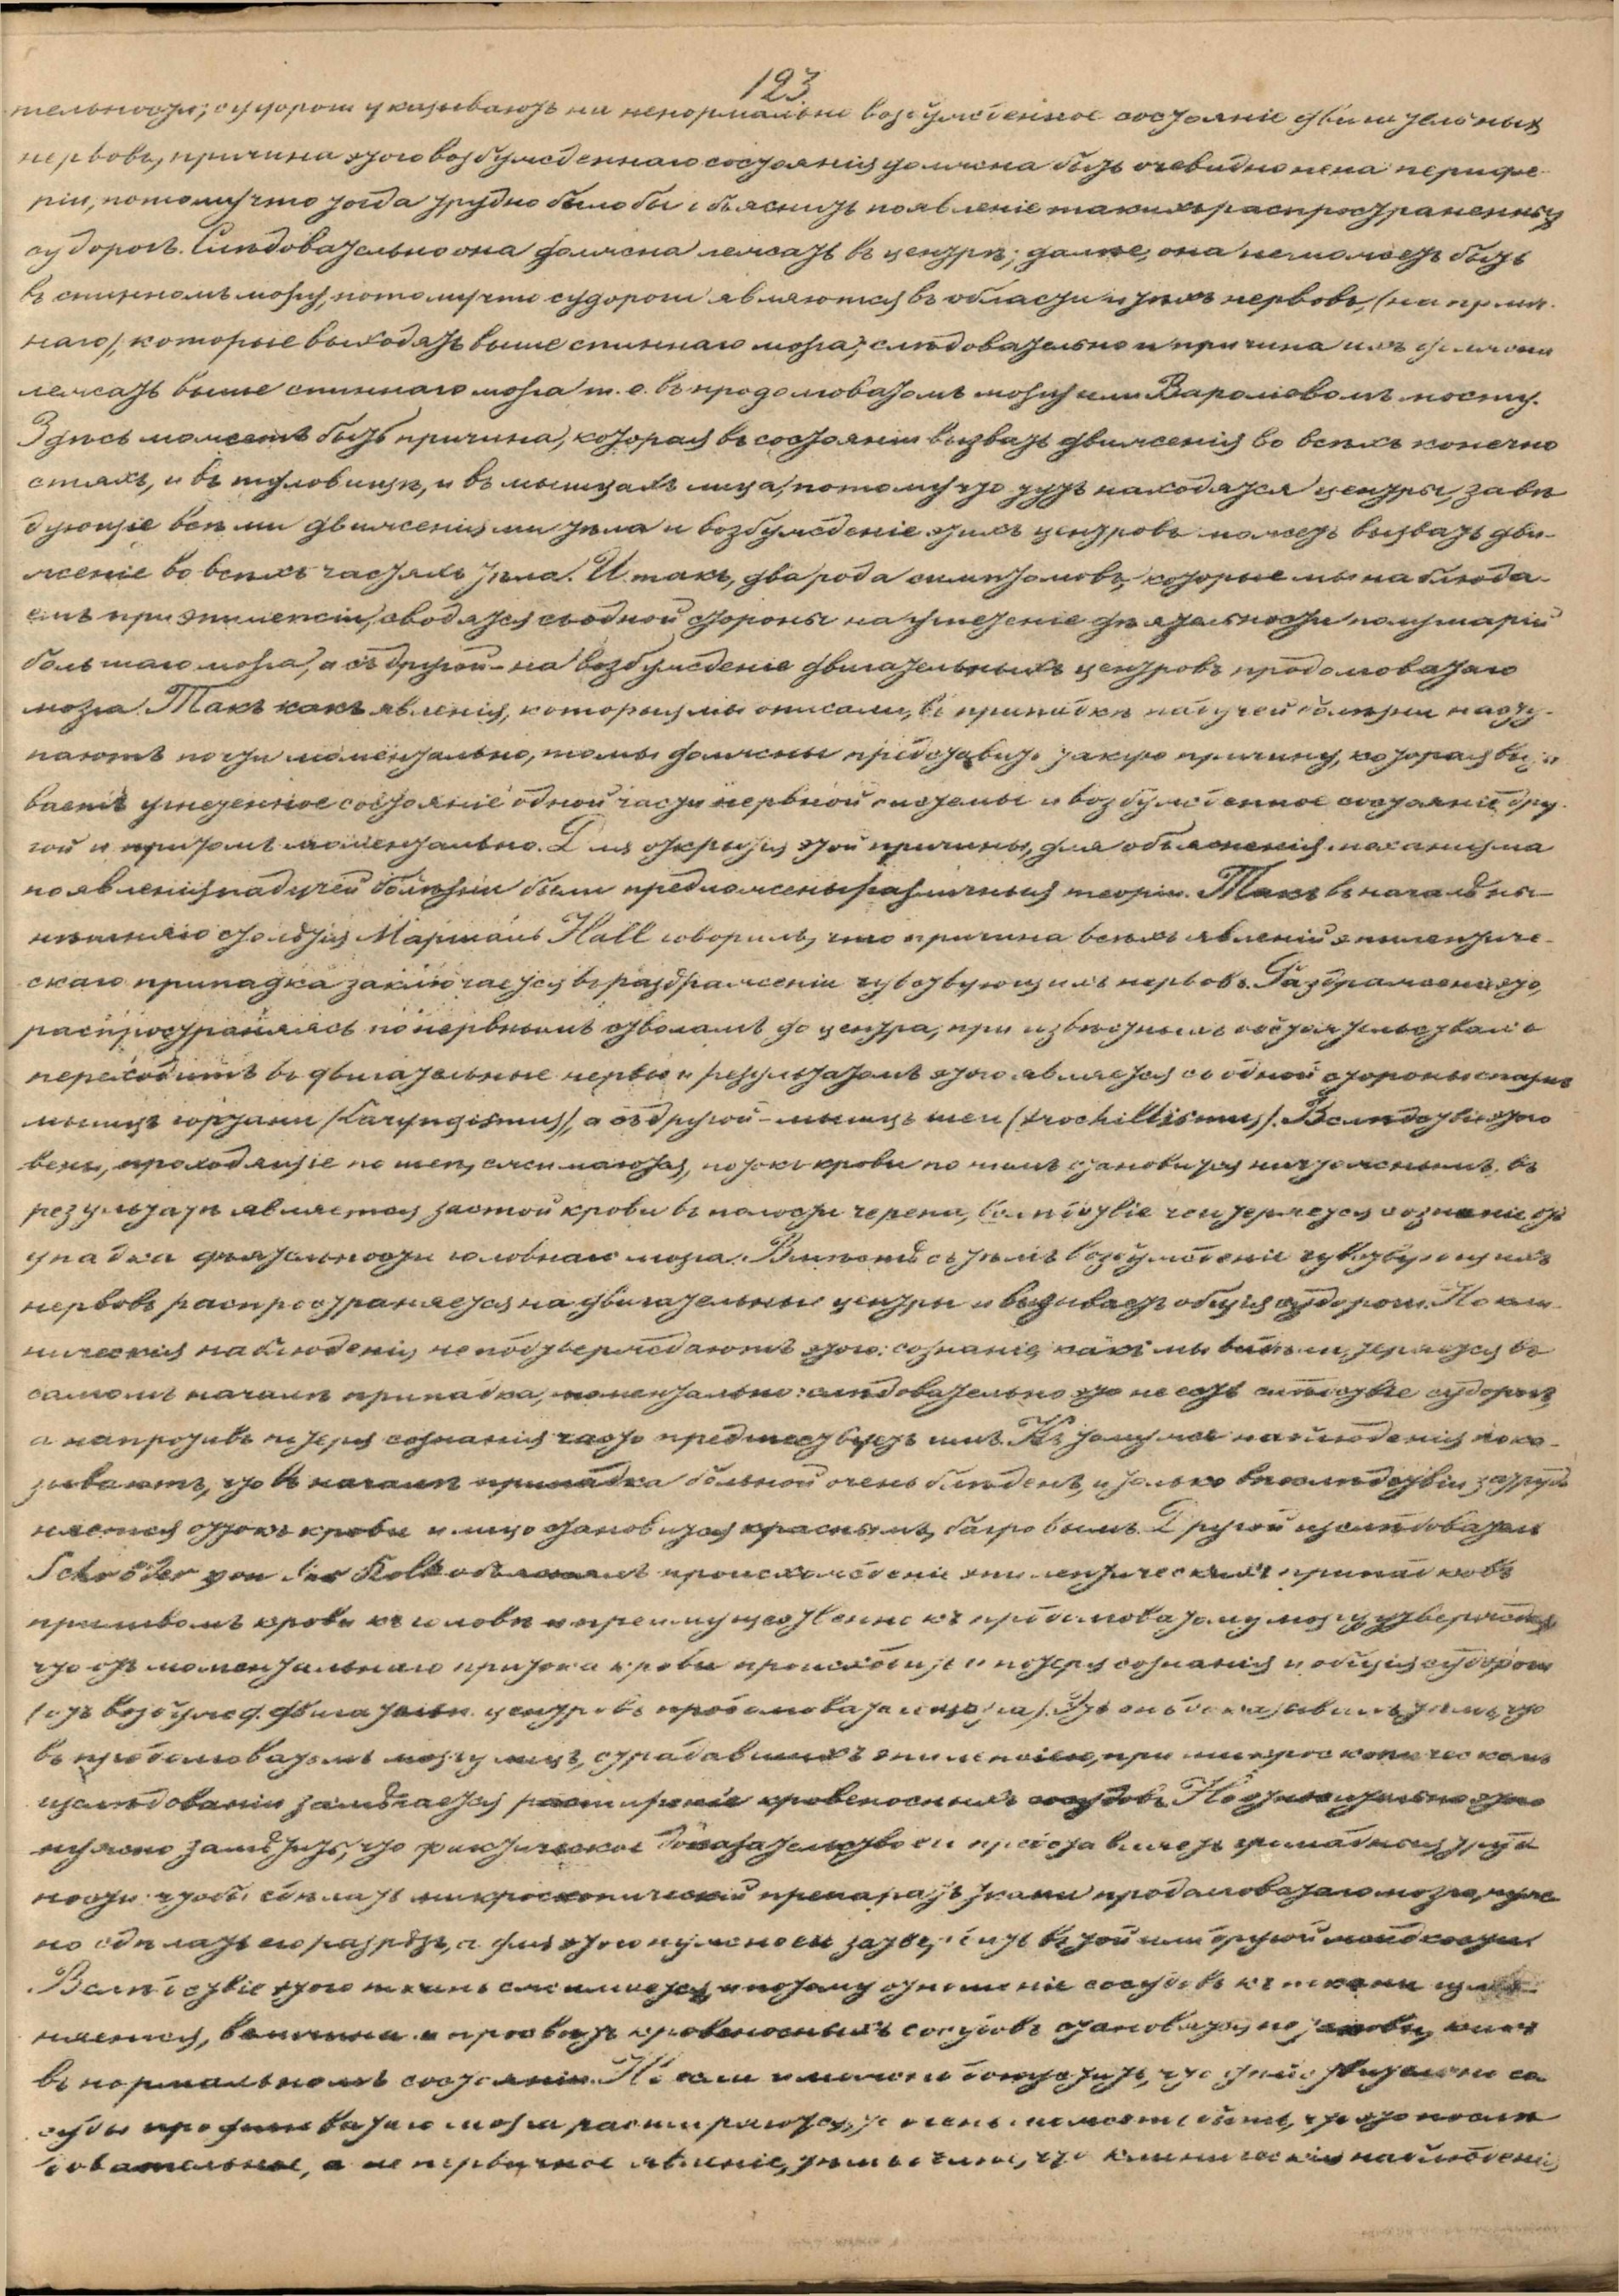 123
тельности; судороги указываютъ на ненормально возбужденное состояніе двигательныхъ
нервовъ, причина этого возбужденнаго состоянія должна быть очевидно не на перифе-
ріи, потому что тогда трудно было бы объяснить появленіе такихъ распространенныхъ
судорогъ. Слѣдовательно она должна лежать въ центрѣ; далѣе, она не можетъ быть
въ спинномъ мозгу, потому что судороги являются въ области и тѣхъ нервовъ, (на прим.
наго), которые выходятъ выше спиннаго мозга; слѣдовательно и причина ихъ должна
лежать выше спиннаго мозга т. е. въ продолговатомъ мозгу или Вароліевомъ мосту.
Здѣсь можетъ быть причина, которая въ состояніи вызвать движенія во всѣхъ конечно
стяхъ, и въ туловищѣ, и въ мышцахъ лица, потому что тутъ находятся центры, завѣ
дующіе всѣми движеніями тѣла и возбужденіе этихъ центровъ можетъ вызвать дви-
женіе во всѣхъ частяхъ тѣла. И такъ, два рода симптомовъ, которые мы наблюда-
емъ при эпилепсіи, сводятся съ одной стороны на угнетеніе дѣятельности полушарій
большаго мозга, а съ другой - на возбужденіе двигательныхъ центровъ продолговатаго
мозга. Такъ какъ явленія, которыя мы описали, въ припадкѣ падучей болѣзни насту-
паютъ почти моментально, то мы должны представить такую причину, которая вызы
ваетъ угнетенное состояніе одной части нервной системы и возбужденное состояніе дру-
гой и притомъ моментально. Для открытія этой причины, для объясненія механизма
появленія падучей болѣзни были предложены различныя теоріи. Такъ въ началѣ ны-
нѣшняго столѣтія Маршаль Hall говорилъ, что причина всѣхъ явленій эпилептиче-
скаго припадка заключается въ раздраженіи чувствующихъ нервовъ. Раздраженіе это,
распространяясь по нервнымъ стволамъ до центра, при извѣстныхъ обстоятельствахъ
переходитъ въ двигательные нервы и результатомъ этого является съ одной стороны спазмъ
мышцъ гортани (Laryngismus), а съ другой - мышцъ шеи (trochillismus). Вслѣдствіе этого
вены, проходящіе по шеѣ, сжимаются, потокъ крови по нимъ становится ничтожнымъ, въ
результатѣ является застой крови въ полости черепа, вслѣдствіе чего теряется сознаніе отъ
упадка дѣятельности головнаго мозга. Вмѣстѣ съ тѣмъ возбужденіе чувствующихъ
нервовъ распространяется на двигательные центры и вызываетъ общія судороги. Но кли-
ническія наблюденія не подтверждаютъ этого: сознаніе, какъ мы видѣли, теряется въ
самомъ началѣ припадка, моментально: слѣдовательно это не есть слѣдствіе судорогъ,
а напротивъ потеря сознанія часто предшествуетъ имъ. Къ тому же наблюденія пока-
зываютъ, что въ началѣ припадка больной очень блѣденъ, и только впослѣдствіи затруд
няется оттокъ крови и лицо становится краснымъ, багровымъ. Другой изслѣдователь
Schröder von der Kolk объясняетъ происхожденіе эпилептическихъ припадковъ
приливомъ крови къ головѣ и преимущественно къ продолговатому мозгу, утверждая,
что отъ моментальнаго притока крови происходитъ и потеря сознанія и общія судороги
(отъ возбужд. двигательн. центровъ продолговатаго мозга). Это онъ доказываетъ тѣмъ, что
въ продолговатомъ мозгу лицъ, страдавшихъ эпилепсіею, при микроскопическомъ
изслѣдованіи замѣчается расширеніе кровеносныхъ сосудовъ. Но относительно этого
нужно замѣтить, что фактическое доказательство си представляетъ громадныя труд
ности: чтобы сдѣлать микроскопическій препаратъ ткани продолговатаго мозга, нуж
но сдѣлать его разрѣзъ, а для этого нужно его затвердить въ той или другой жидкости.
Вслѣдствіе этого ткань сжимается, и потому отношеніе сосудовъ къ ткани измѣ-
няется, величина и просвѣтъ кровеносныхъ сосудовъ становятся не таковы, какъ
въ нормальномъ состояніи. Но если и можно допустить, что дѣйствительно со
суды продолговатаго мозга расширяются, то очень можетъ быть, что это послѣ
довательное, а не первичное явленіе, тѣмъ болѣе, что клиническія наблюденія